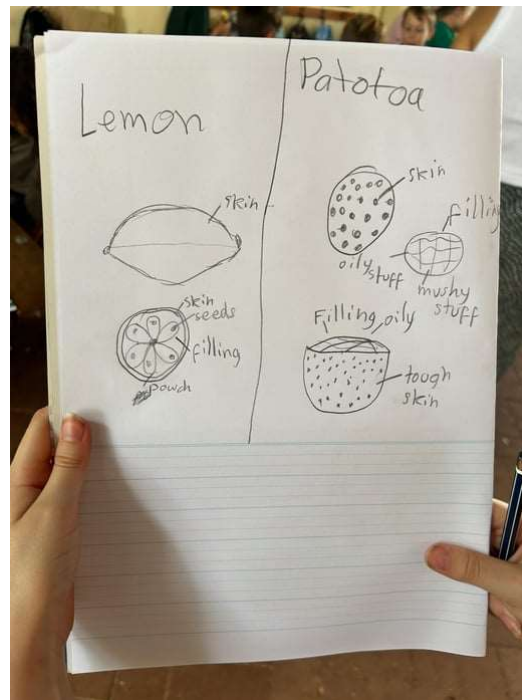 Lemon
skin
skin
seeds
filling
powch
Patotoa
skin
filling
oily
stuff
mushy
stuff
Filling, oily
tough
skin